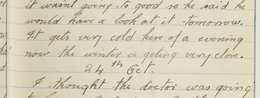 it wasnt going to good so he said he
would have a look at it tomorrow.
It gets very cold here of a evening
now the winter is geting very close.
24th Oct.
I thought the doctor was going